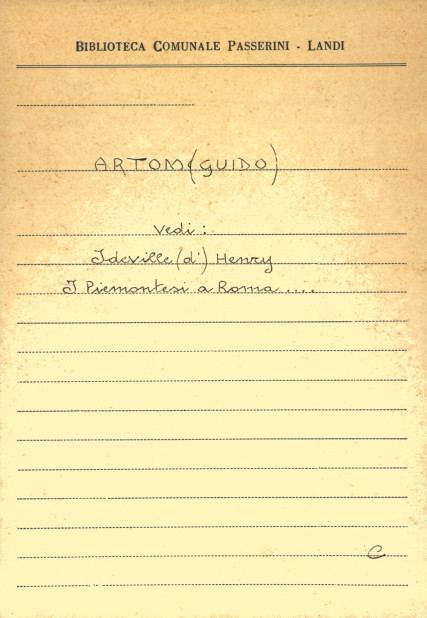 BIBLIOTECA COMUNALE PASSERINI - LANDI
ARTOM (GUIDO)
Vedi:
Ideville (d') Henry
I Piemontesi a Roma ....
C